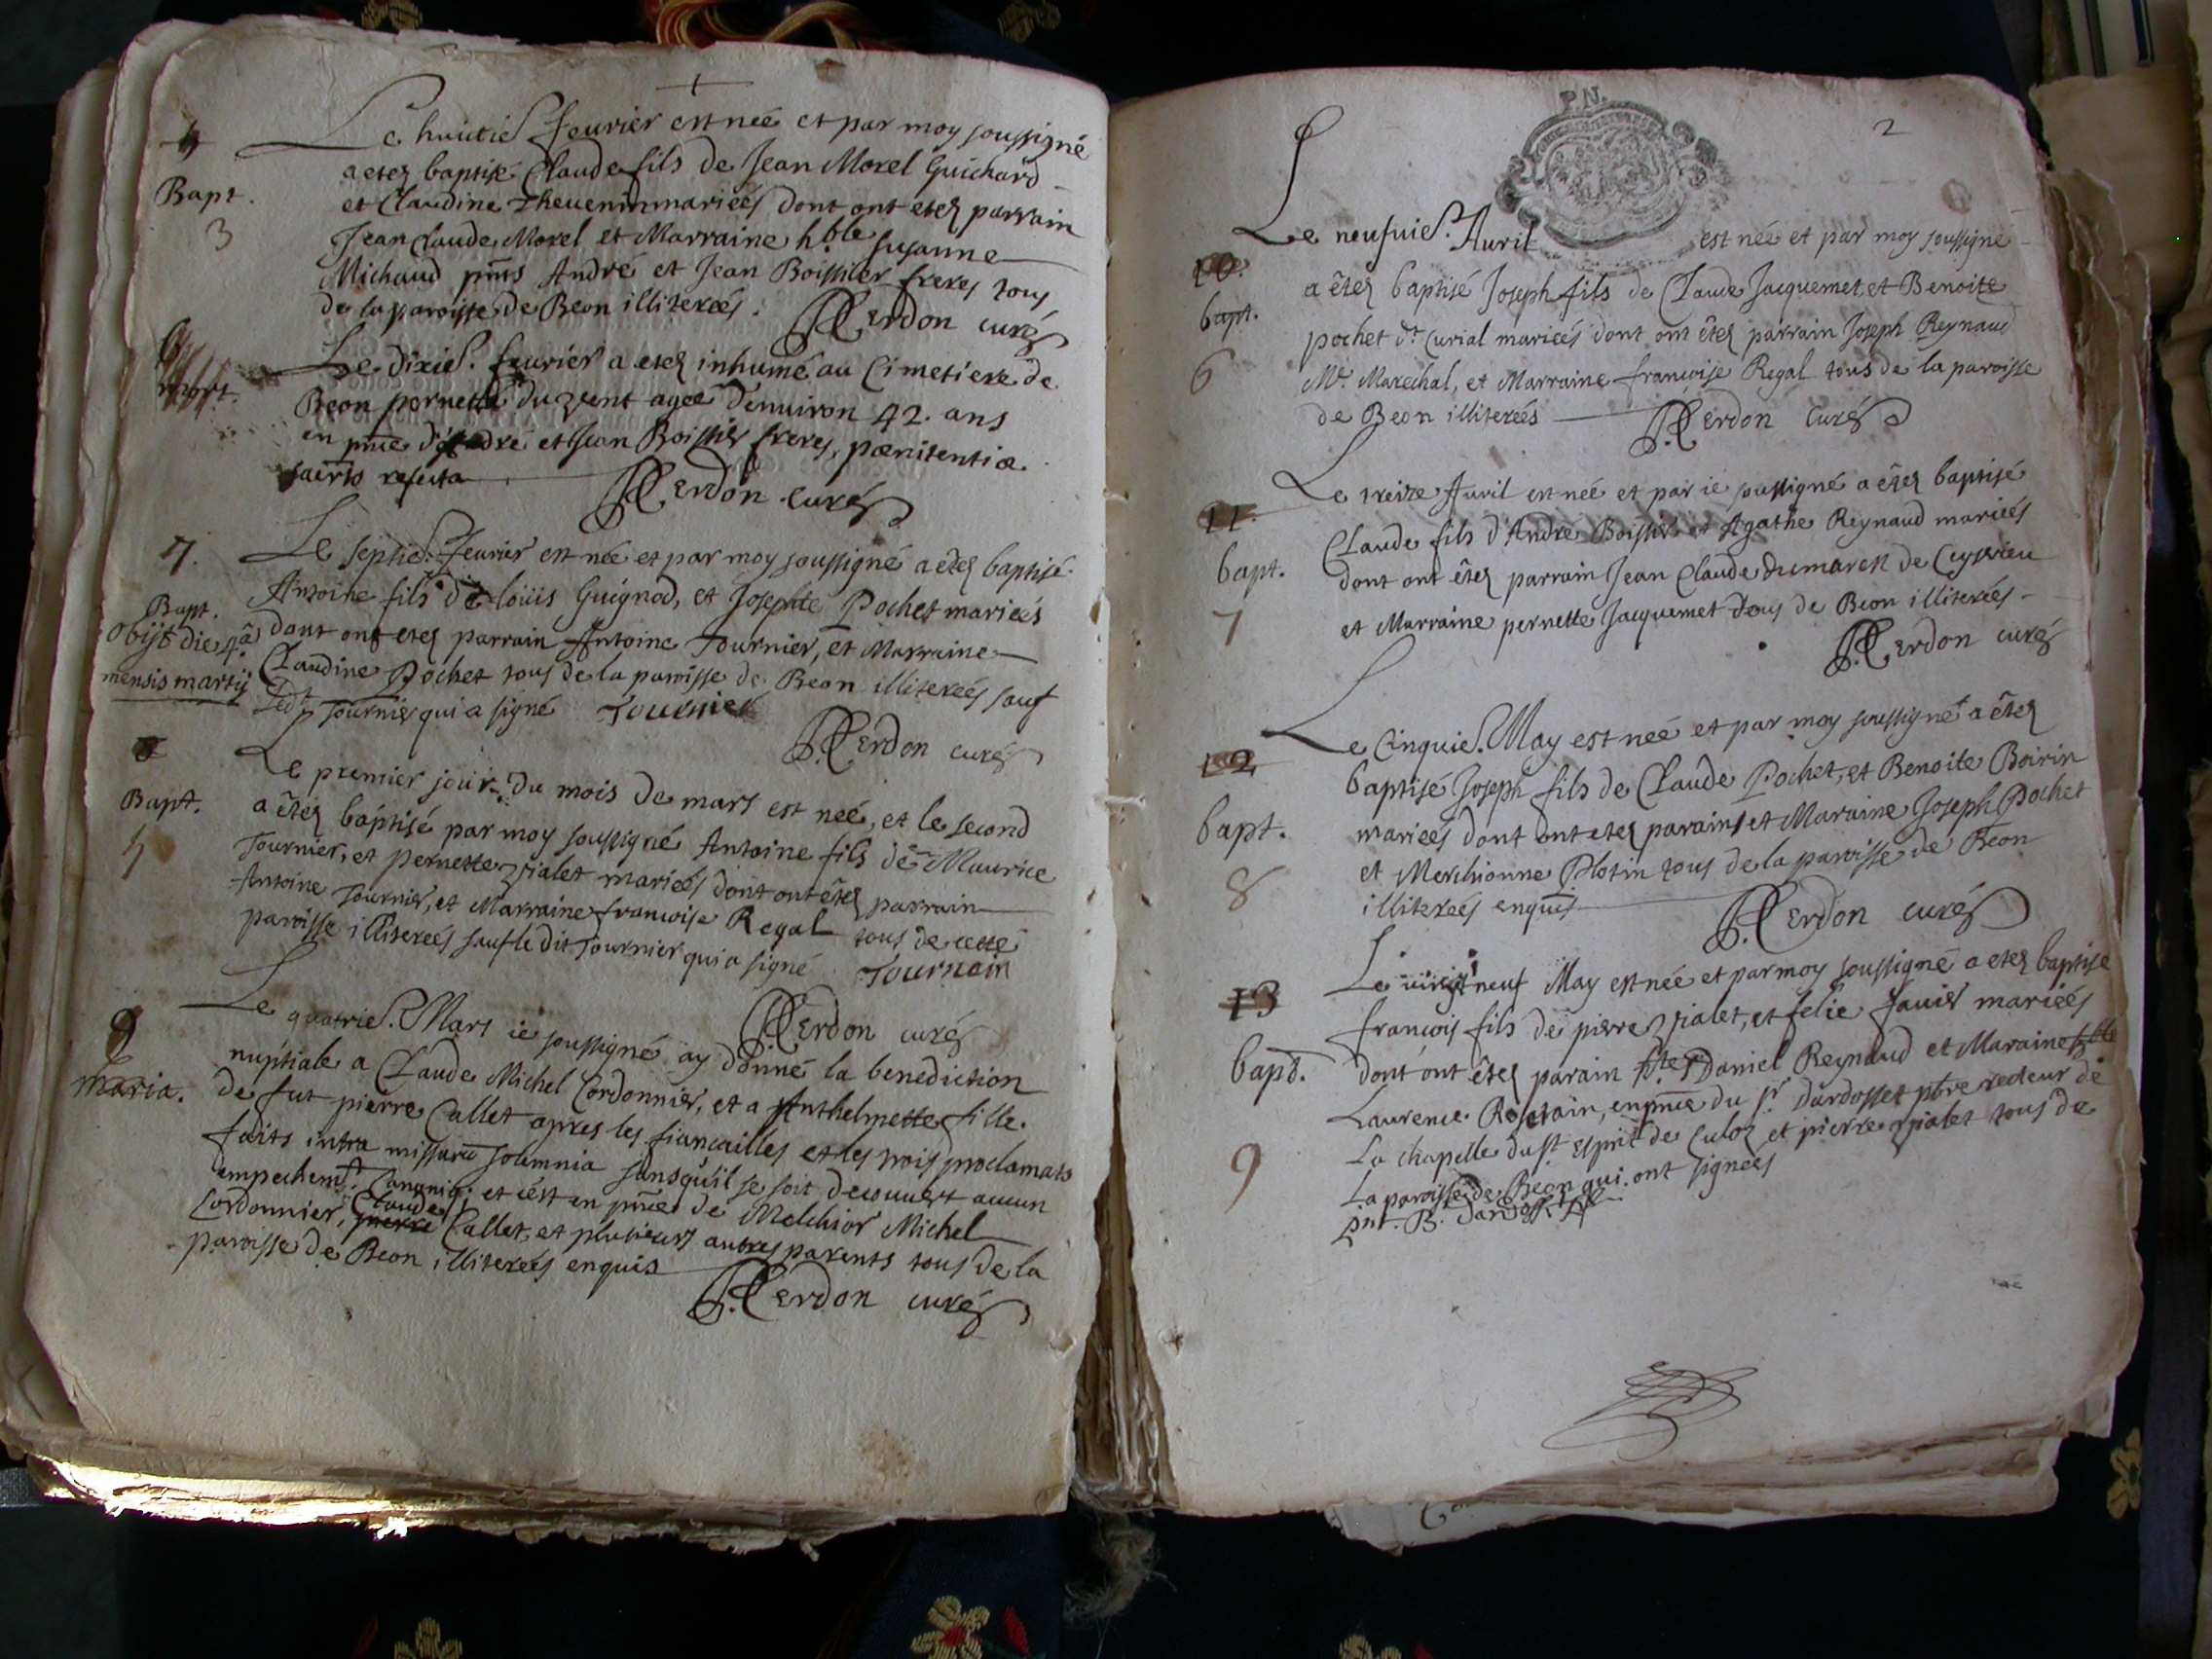 Le huitie. feurier est neé et par moy soussigné
Bapt. a etez baptisé Claude fils de Jean Morel Guichard
3 et Claudine Thevenin marieés dont ont etez parrain
Jean Claude Morel et Marraine h.ble Susanne
Michaud pnts André et Jean Boissier freres tous
de la paroisse de Beon illitereés. Cerdon curé
mort. Le dixie. feurier a etez inhumé au Cimetiere de
Beon pernette ageé d'enuiron 42. ans
en pnce d'André et Jean Boissier freres, pœnitentiæ
refecta Cerdon curé
7. Le septie. feurier est neé et par moy soussigné a êtez baptisé
Bapt. Antoine fils de loüis Guignod, et Josephte Pochet marieés
obijt die 4.a dont ont etez parrain Antoine Tournier, et Marraine
mensis martij Claudine Pochet tous de la paroisse de Beon illitereés sauf
ledt Tournier qui a signé Tournier
Cerdon curé
Le premier jour du mois de mars est neé, et le second
Bapt. a êtez baptisé par moy soussigné Antoine fils de Maurice
Tournier, et pernette rialet marieés dont ont êtez parrain
Antoine Tournier, et Marraine francoise Regal tous de cette
paroisse illitereés sauf le dit Tournier qui a signé Tournier
Cerdon curé
9 Le quatrie. Mars ie soussigné ay donné la benediction
maria. nuptiale a Claude Michel Cordonnier, et a Anthelmette fille
de fut pierre Callet apres les fiancailles et les trois proclamats
faits intra missarū solemnia sans qu'il se soit decouuert aucun
empechemt. Canoniq. et c'est en pnce de Melchior Michel
Claude
Cordonnier, pierre Callet, et plusieurs autres parents tous de la
paroisse de Beon illitereés enquis
Cerdon curé
P.N.
2
Le neufuie. Auril est neé et par moy soussigné
10. a êtez baptisé Joseph fils de Claude Jacquemet et Benoite
bapt. pochet dt Curial marieés dont ont êtez parrain Joseph Reynaud
6 Mr. Marechal, et Marraine francoise Regal tous de la paroisse
de Beon illitereés Cerdon Curé
11. Le treize Auril est neé et par ie soussigné a êtez baptisé
Claude fils d'André Boissier et Agathe Reynaud marieés
bapt. dont ont êtez parrain Jean Claude Dumarest de Ceyzerieu
7 et Marraine pernette Jacquemet tous de Beon illitereés
Cerdon curé
Le Cinquie. May est neé et par moy soussigné a êtez
12 baptisé Joseph fils de Claude Pochet, et Benoite Boirin
bapt. marieés dont ont etez parain et Maraine Joseph Pochet
8 et Merchionne Plotin tous de la paroisse de Beon
illitereés enquis
Cerdon curé
13 Le vingt neuf May est neé et par moy soussigné a etez baptisé
francois fils de pierre rialet, et felie Jauier marieés
bapt. dont ont êtez parain Daniel Reynaud et Maraine
Laurence, en pnce du sr. Dardosset pbre recteur de
9 La chapelle du st Esprit de Culoz et pierre rialet tous de
La paroisse de Beon qui ont signeés